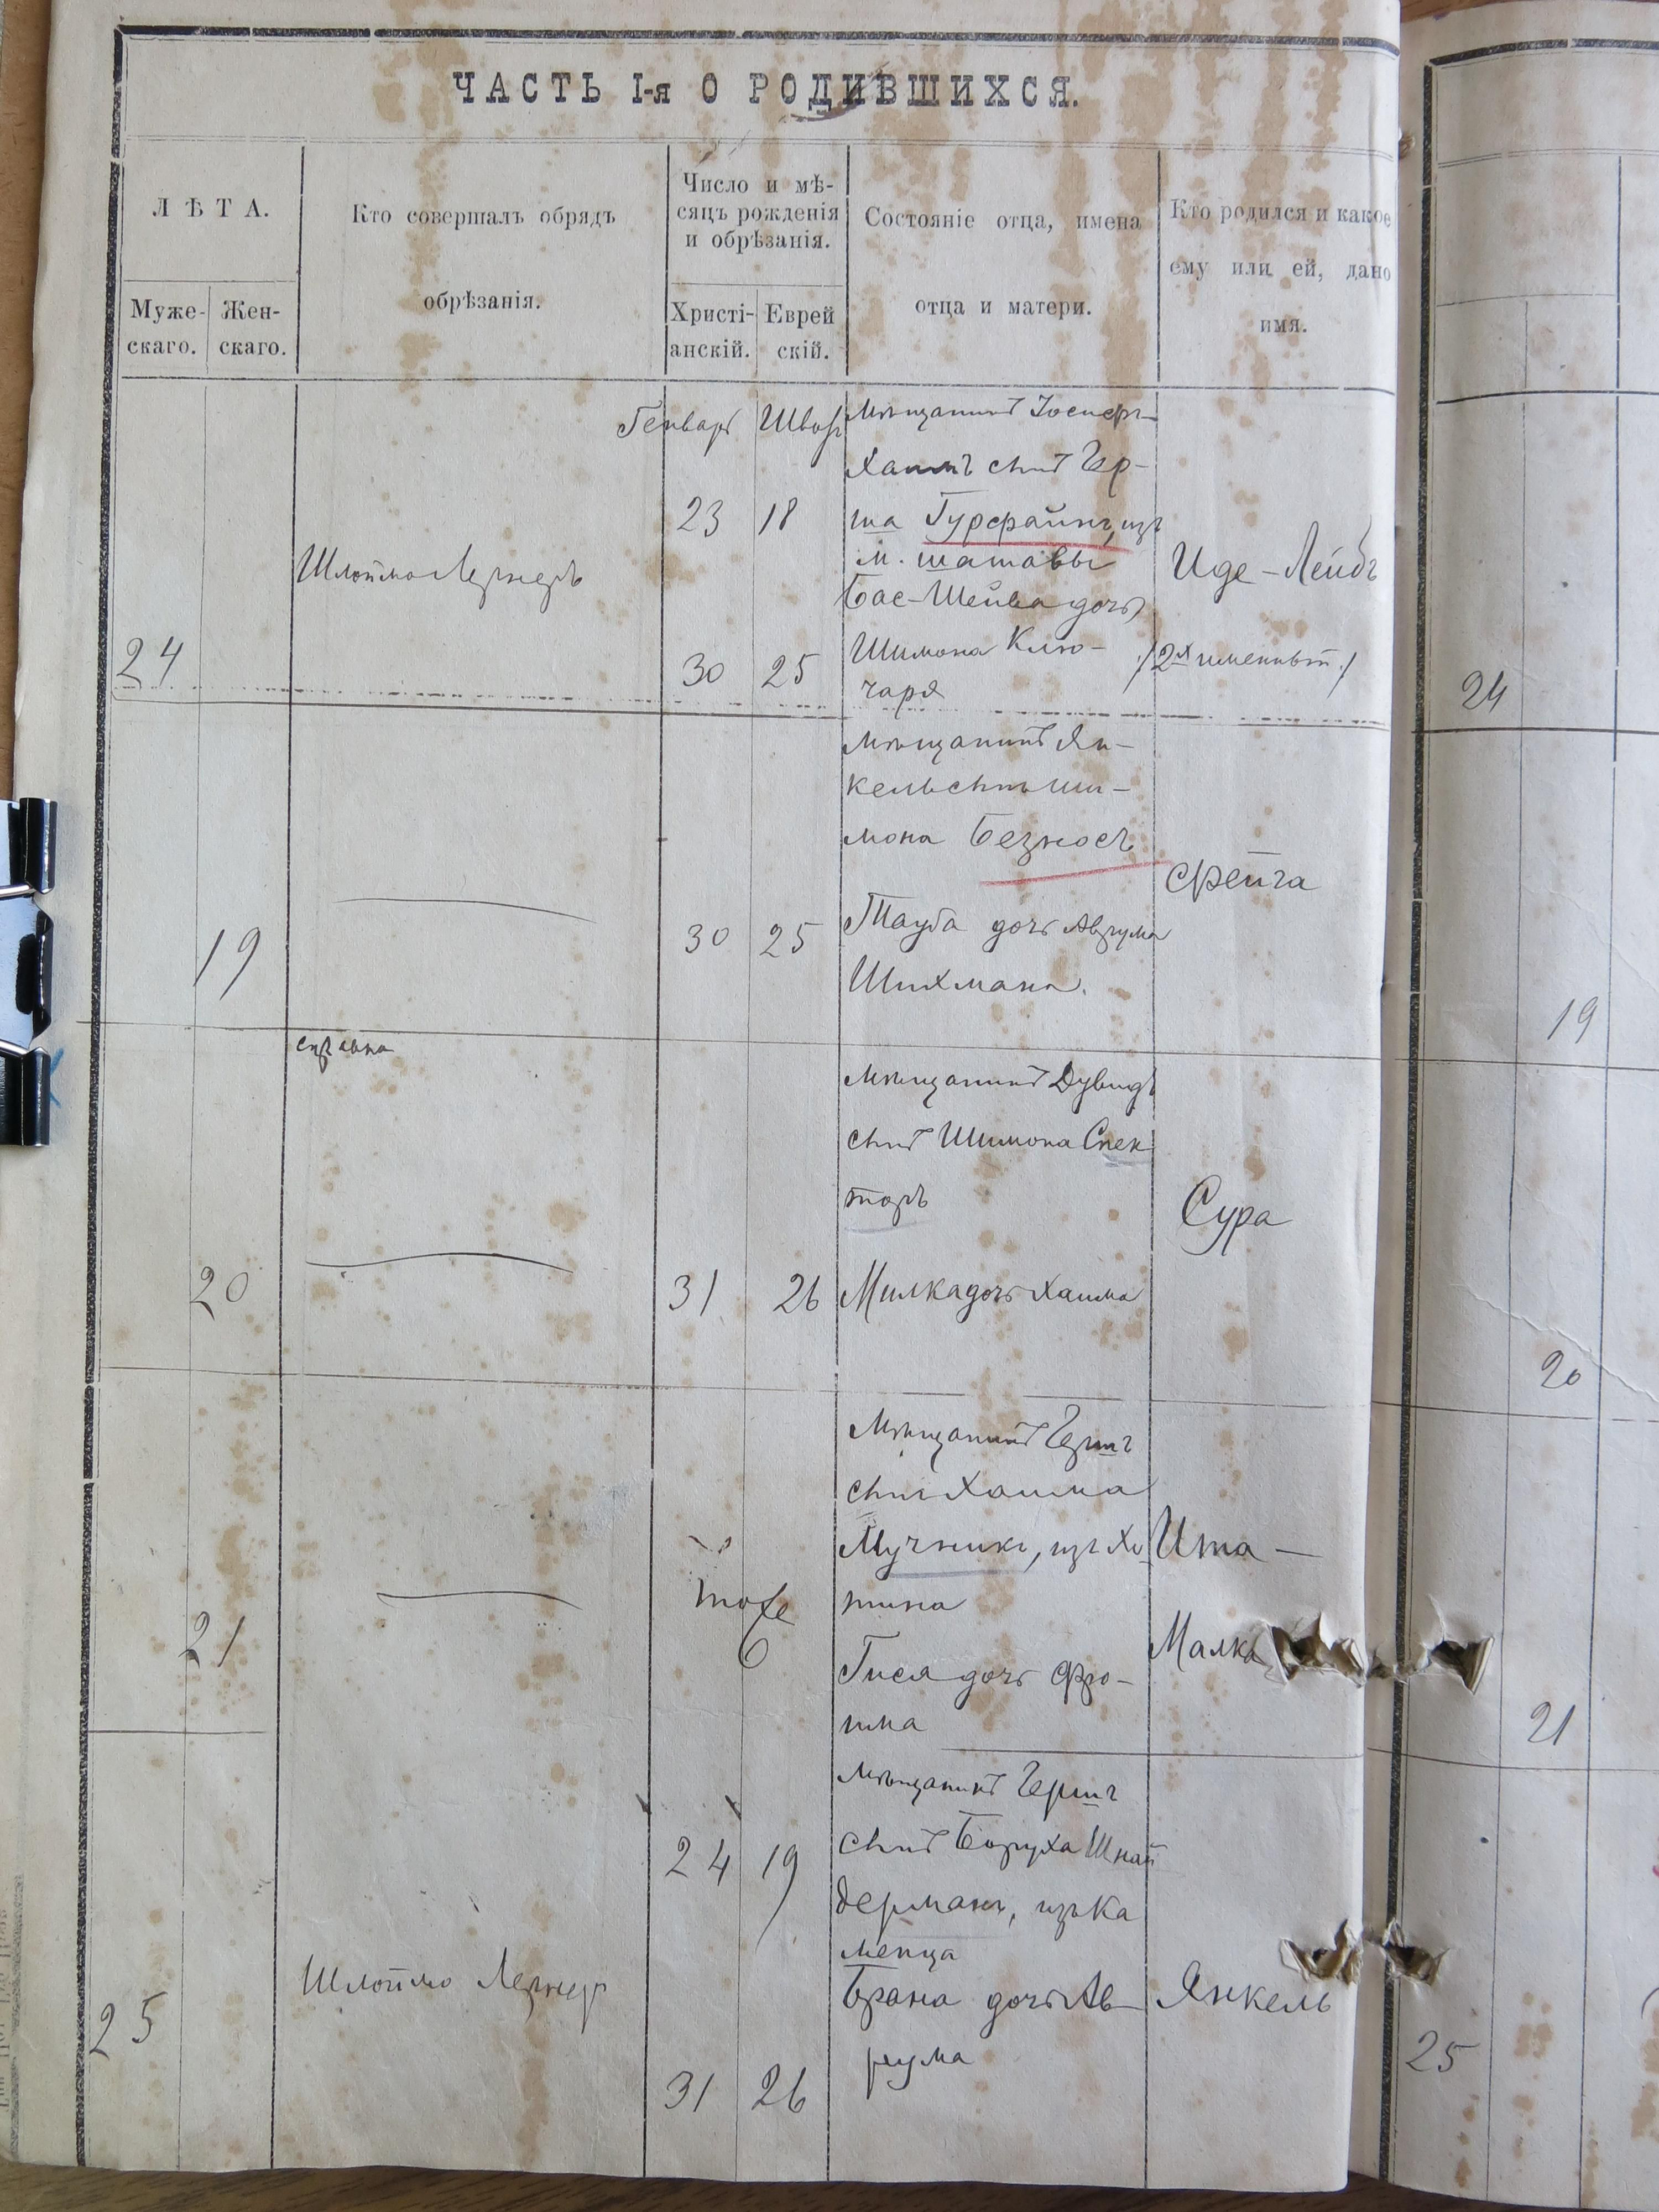 ЧАСТЬ I-я О РОДИВШИХСЯ.
ЛѢТА.
Муже-
скаго.
Жен-
скаго.
Кто совершалъ обрядъ
обрѣзанія.
Число и мѣ-
сяцъ рожденія
и обрѣзанія.
Христі-
анскій.
Еврей
скій.
Состояніе отца, имена
отца и матери.
Кто родился и какое
ему или ей, дано
имя.
24
Шлойма Лернеръ
Генварь
Шват
23 18
30 25
Мѣщанинъ Іосифъ-
Хаимъ сынъ Гер-
ша Гурфайнъ, изъ
м. Шатавы
Бас-Шейва дочь
Шимона Клю-
чаря
Иде-Лейбъ
/2х именный/
24
19
30 25
Мѣщанинъ Ян-
кель сынъ Ши-
мона Безносъ
Тауба дочь Аврума
Шихмана.
Фейга
19
справка
20
31 26
Мѣщанинъ Дувидъ
сынъ Шимона Спек
торъ
Милка дочь Хаима
Сура
20
21
тоже
Мѣщанинъ Гершъ
сынъ Хаима
Мучникъ, изъ Хо
тина
Гися дочь Фро-
има
Ита-
Малка
21
25
Шлоймо Лернеръ
24 19
31 26
Мѣщанинъ Гершъ
сынъ Боруха Шнай
дерманъ, изъ Ка
менца
Брана дочь Ав-
рума
Янкель
25